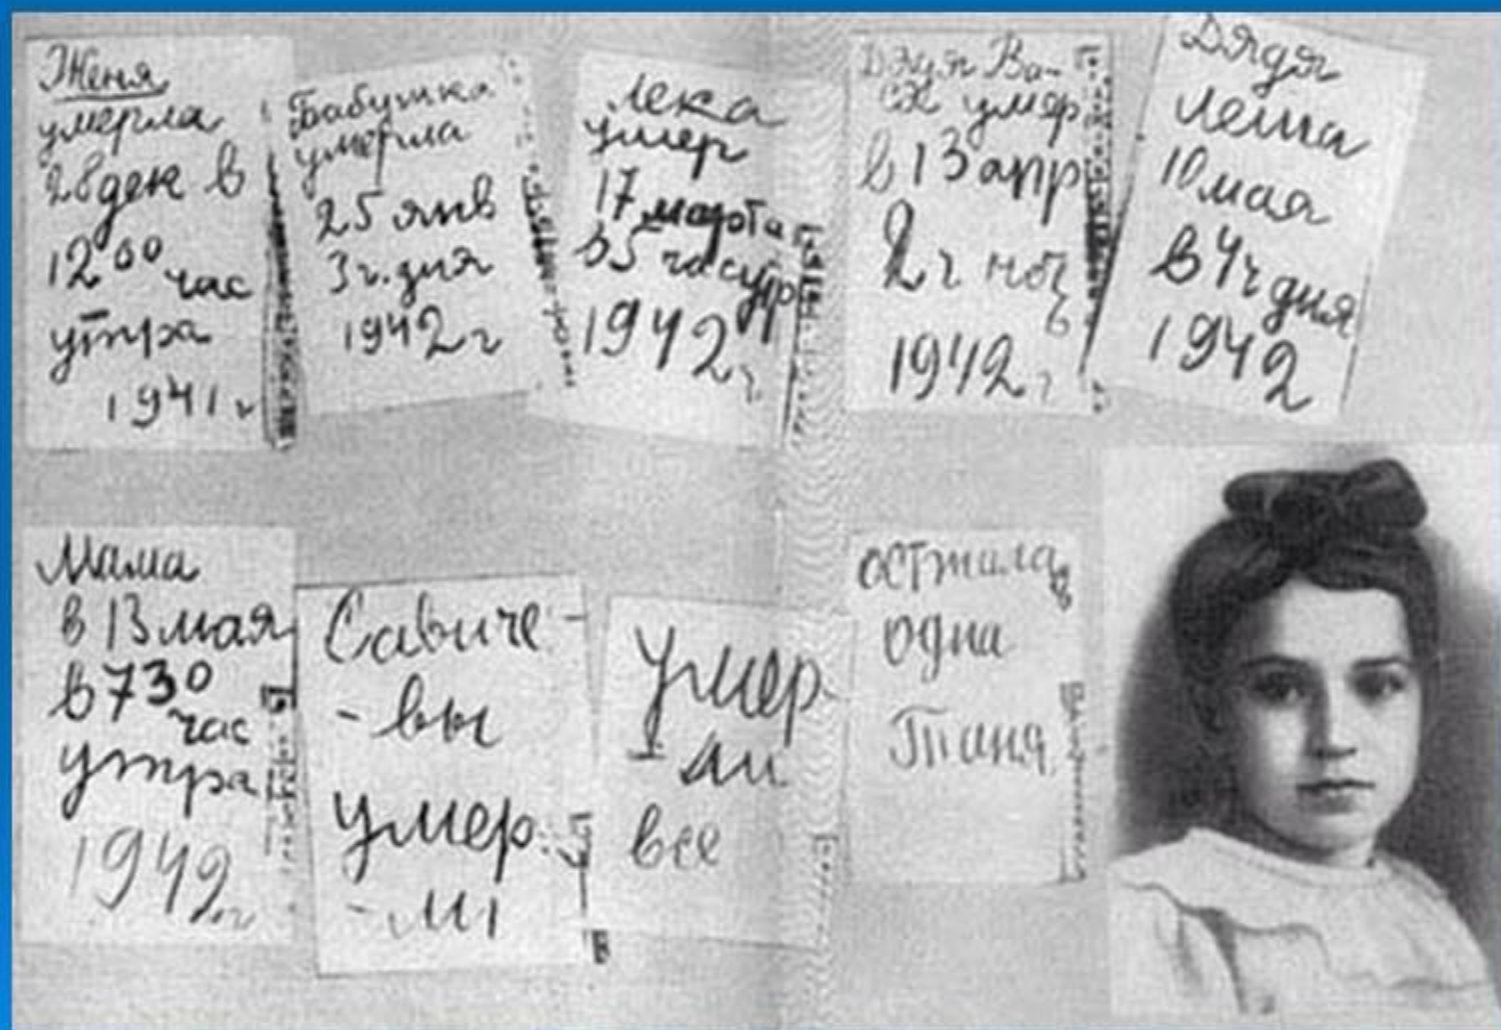 Женя
умерла
28 дек в
12⁰⁰ час
утра
1941 г
Бабушка
умерла
25 янв
3 ч. дня
1942 г
Лека
умер
17 марта
в 5 час утр
1942 г
Дядя Ва-
ся умер
в 13 апр
2 ч ночь
1942 г
Дядя
Леша
10 мая
в 4 ч дня
1942
Мама
в 13 мая
в 7³⁰
час
утра
1942 г
Савиче-
-вы
умер-
-ли
Умер-
-ли
все
осталась
одна
Таня